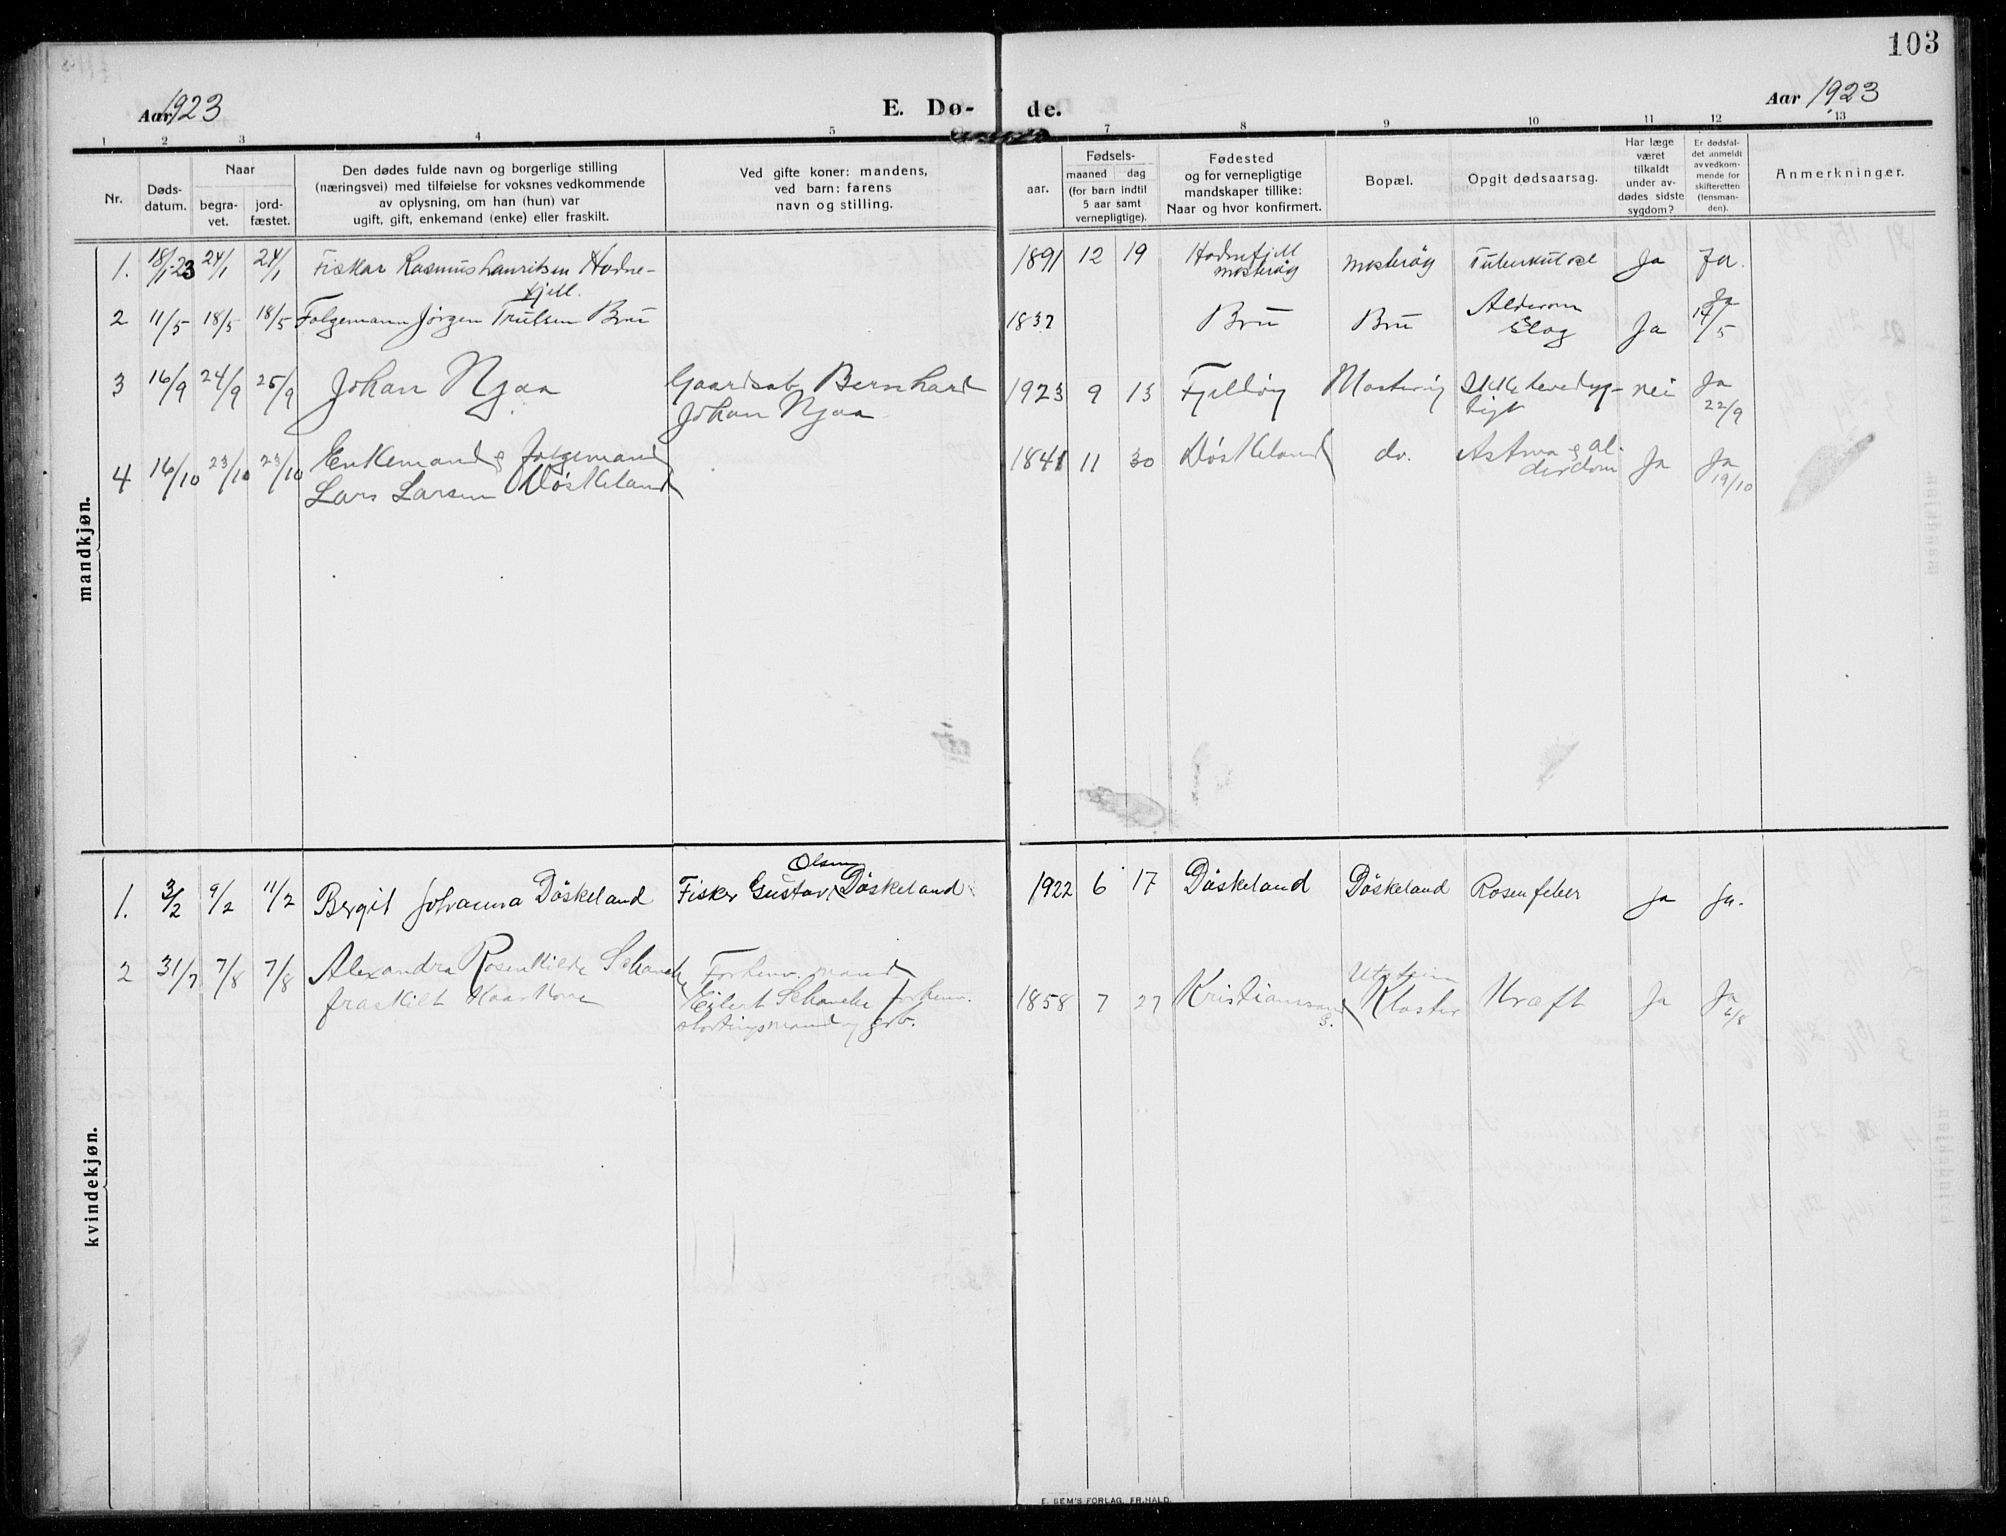 103
Aar 1923
E. Dø-
de.
Aar 1923
1 2 3 4 5 7 8 9 10 11 12 13
Nr.
Døds-
datum.
Naar
begra-
vet.
jord-
fæstet.
Den dødes fulde navn og borgerlige stilling
(næringsvei) med tilføielse for voksnes vedkommende
av oplysning, om han (hun) var
ugift, gift, enkemand (enke) eller fraskilt.
Ved gifte koner: mandens,
ved barn: farens
navn og stilling.
Fødsels-
aar.
maaned dag
(for barn indtil
5 aar samt
vernepligtige).
Fødested
og for vernepligtige
mandskaper tillike:
Naar og hvor konfirmert.
Bopæl.
Opgit dødsaarsag.
Har læge
været
tilkaldt
under av-
dødes sidste
sygdom?
Er dødsfal-
det anmeldt
av vedkom-
mende for
skifteretten
(lensman-
den).
Anmerkninger.
mandkjøn.
1. 18/1-23 24/1 24/1 Fisker Rasmus Lauritsen Hodne-
fjell. 1891 12 19 Hodnefjell
Mosterøy Mosterøy Tuberkulose Ja Ja.
2 11/5 18/5 18/5 Folgemann Jørgen Trulsen Bru 1832 Bru Bru Alderdom
Slag Ja Ja
14/5
3 16/9 24/9 25/9 Johan Njaa Gaardsab. Bernhard
Johan Njaa 1923 9 13 Fjelløy Mosterøy Ikke levedyg-
tigt nei Ja
22/9
4 16/10 23/10 23/10 Enkemand & folgemand
Lars Larsen Døskeland 1841 11 30 Døskeland do. Astma & al-
derdom Ja Ja
19/10
kvindekjøn.
1. 3/2 9/2 11/2 Bergit Johanna Döskeland Fisker Gustav Olsen Döskeland 1922 6 17 Döskeland Döskeland Rosenfeber Ja Ja.
2 31/7 7/8 7/8 Alexandra Rosenkilde Schanche
fraskilt Forhenv. mand
Eilert Schanche forhenv.
stortingsmand 1858 7 27 Kristianssand
S. Utstein
Kloster Kræft Ja Ja
2/8
E. SEM'S FORLAG, FR.HALD.